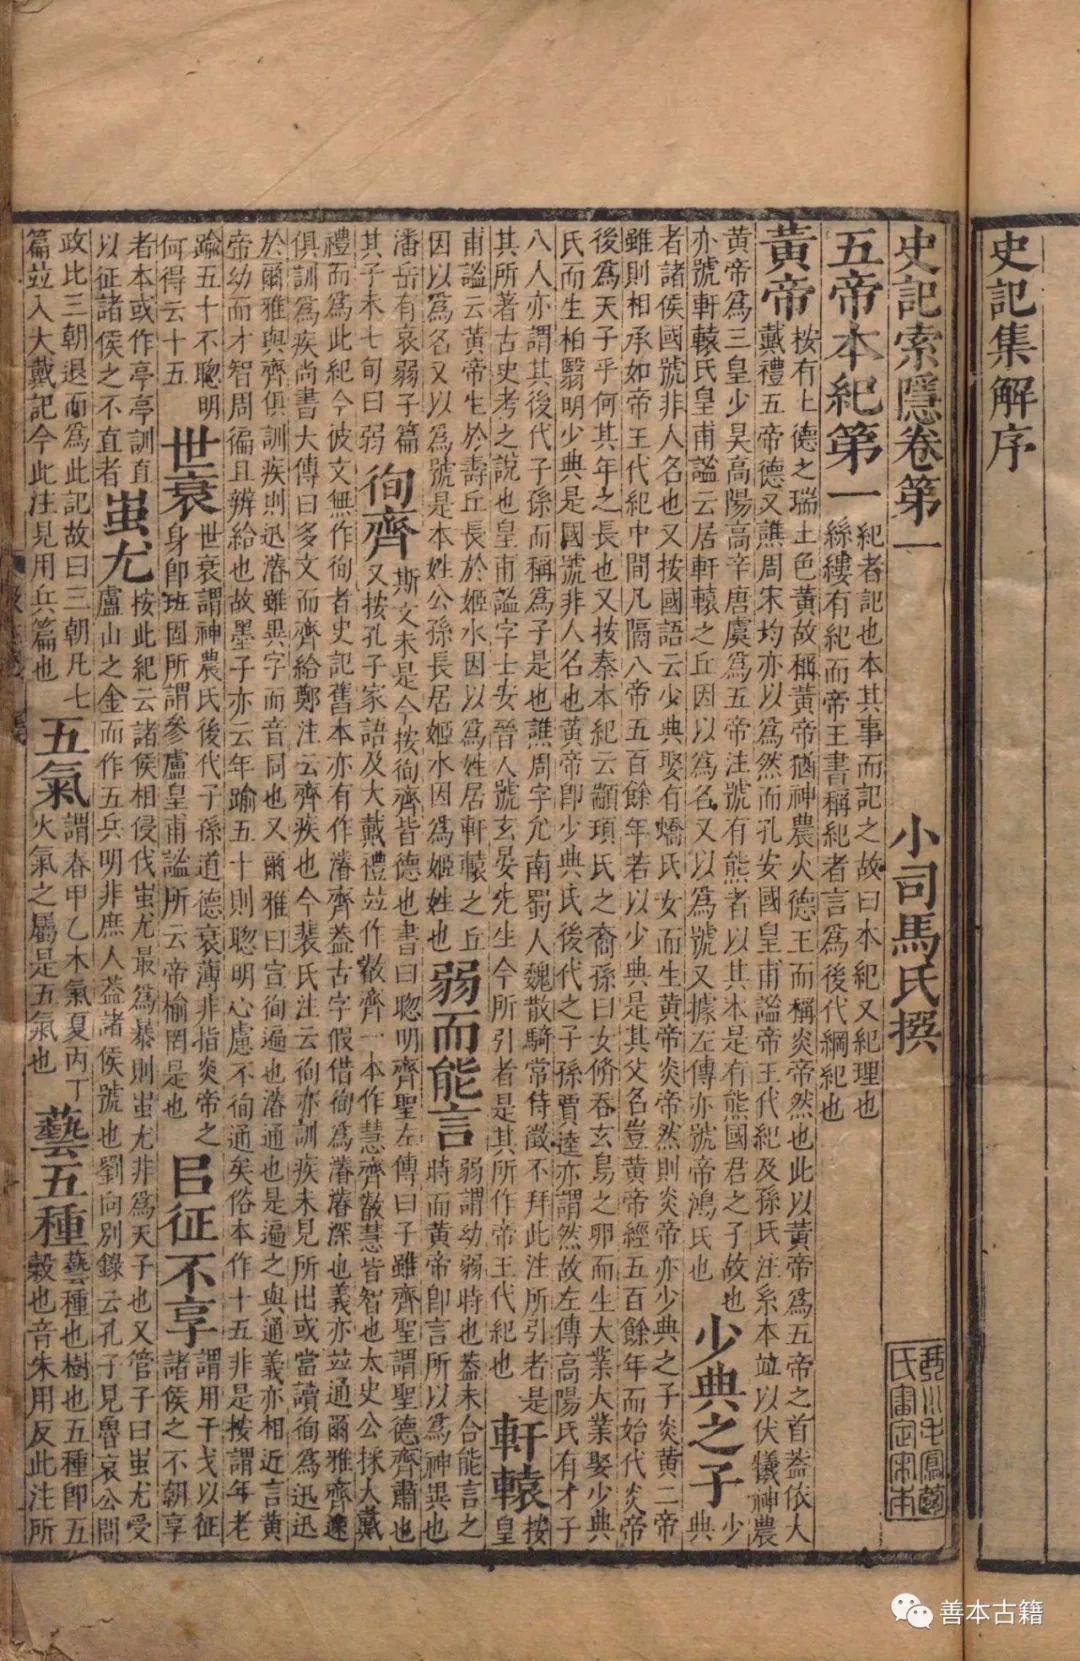 史記集解序
史記索隱卷第一 小司馬氏撰
琴川毛鳳苞
氏審定宋本
五帝本紀第一
紀者記也本其事而記之故曰本紀又紀理也
絲縷有紀而帝王書稱紀者言為後代綱紀也
黃帝
按有土德之瑞土色黃故稱黃帝猶神農火德王而稱炎帝然也此以黃帝為五帝之首蓋依大
戴禮五帝德又譙周宋均亦以為然而孔安國皇甫謐帝王代紀及孫氏注系本竝以伏犧神農
黃帝為三皇少昊高陽高辛唐虞為五帝注號有熊者以其本是有熊國君之子故也
亦號軒轅氏皇甫謐云居軒轅之丘因以為名又以為號又據左傳亦號帝鴻氏也
少典之子
少
典
者諸侯國號非人名也又按國語云少典娶有蟜氏女而生黃帝炎帝然則炎帝亦少典之子炎黃二帝
雖則相承如帝王代紀中間凡隔八帝五百餘年若以少典是其父名豈黃帝經五百餘年而始代炎帝
後為天子乎何其年之長也又按秦本紀云顓頊氏之裔孫曰女脩吞玄鳥之卵而生大業大業娶少典
氏而生柏翳明少典是國號非人名也黃帝即少典氏後代之子孫賈逵亦謂然故左傳高陽氏有才子
八人亦謂其後代子孫而稱為子是也譙周字允南蜀人魏散騎常侍徵不拜此注所引者是
其所著古史考之說也皇甫謐字士安晉人號玄晏先生今所引者是其所作帝王代紀也
軒轅
按
皇
甫謐云黃帝生於壽丘長於姬水因以為姓居軒轅之丘
因以為名又以為號是本姓公孫長居姬水因為姬姓也
弱而能言
弱謂幼弱時也蓋未合能言之
時而黃帝即言所以為神異也
潘岳有哀弱子篇
其子未七旬曰弱
徇齊
斯文未是今按徇齊皆德也書曰聰明齊聖左傳曰子雖齊聖謂聖德齊肅也
又按孔子家語及大戴禮竝作叡齊一本作慧齊叡慧皆智也太史公採大戴
禮而為此紀今彼文無作徇者史記舊本亦有作濬齊蓋古字假借徇為濬濬深也義亦竝通爾雅齊速
俱訓為疾尚書大傳曰多文而齊給鄭注云齊疾也今裴氏注云徇亦訓疾未見所出或當讀徇為迅迅
於爾雅與齊俱訓疾則迅濬雖異字而音同也又爾雅曰宣徇遍也濬通也是遍之與通義亦相近言黃
帝幼而才智周徧且辨給也故墨子亦云年踰五十則聰明心慮不徇通矣俗本作十五非是按謂年老
踰五十不聰明
何得云十五
世衰
世衰謂神農氏後代子孫道德衰薄非指炎帝之
身即班固所謂參盧皇甫謐所云帝榆罔是也
㠯征不享
謂用干戈以征
諸侯之不朝享
者本或作亭亭訓直
以征諸侯之不直者
蚩尤
按此紀云諸侯相侵伐蚩尤最為暴則蚩尤非為天子也又管子曰蚩尤受
盧山之金而作五兵明非庶人蓋諸侯號也劉向別錄云孔子見魯哀公問
政比三朝退而為此記故曰三朝凡七
篇竝入大戴記今此注見用兵篇也
五氣
謂春甲乙木氣夏丙丁
火氣之屬是五氣也
藝五種
藝種也樹也五種即五
穀也音朱用反此注所
善本古籍